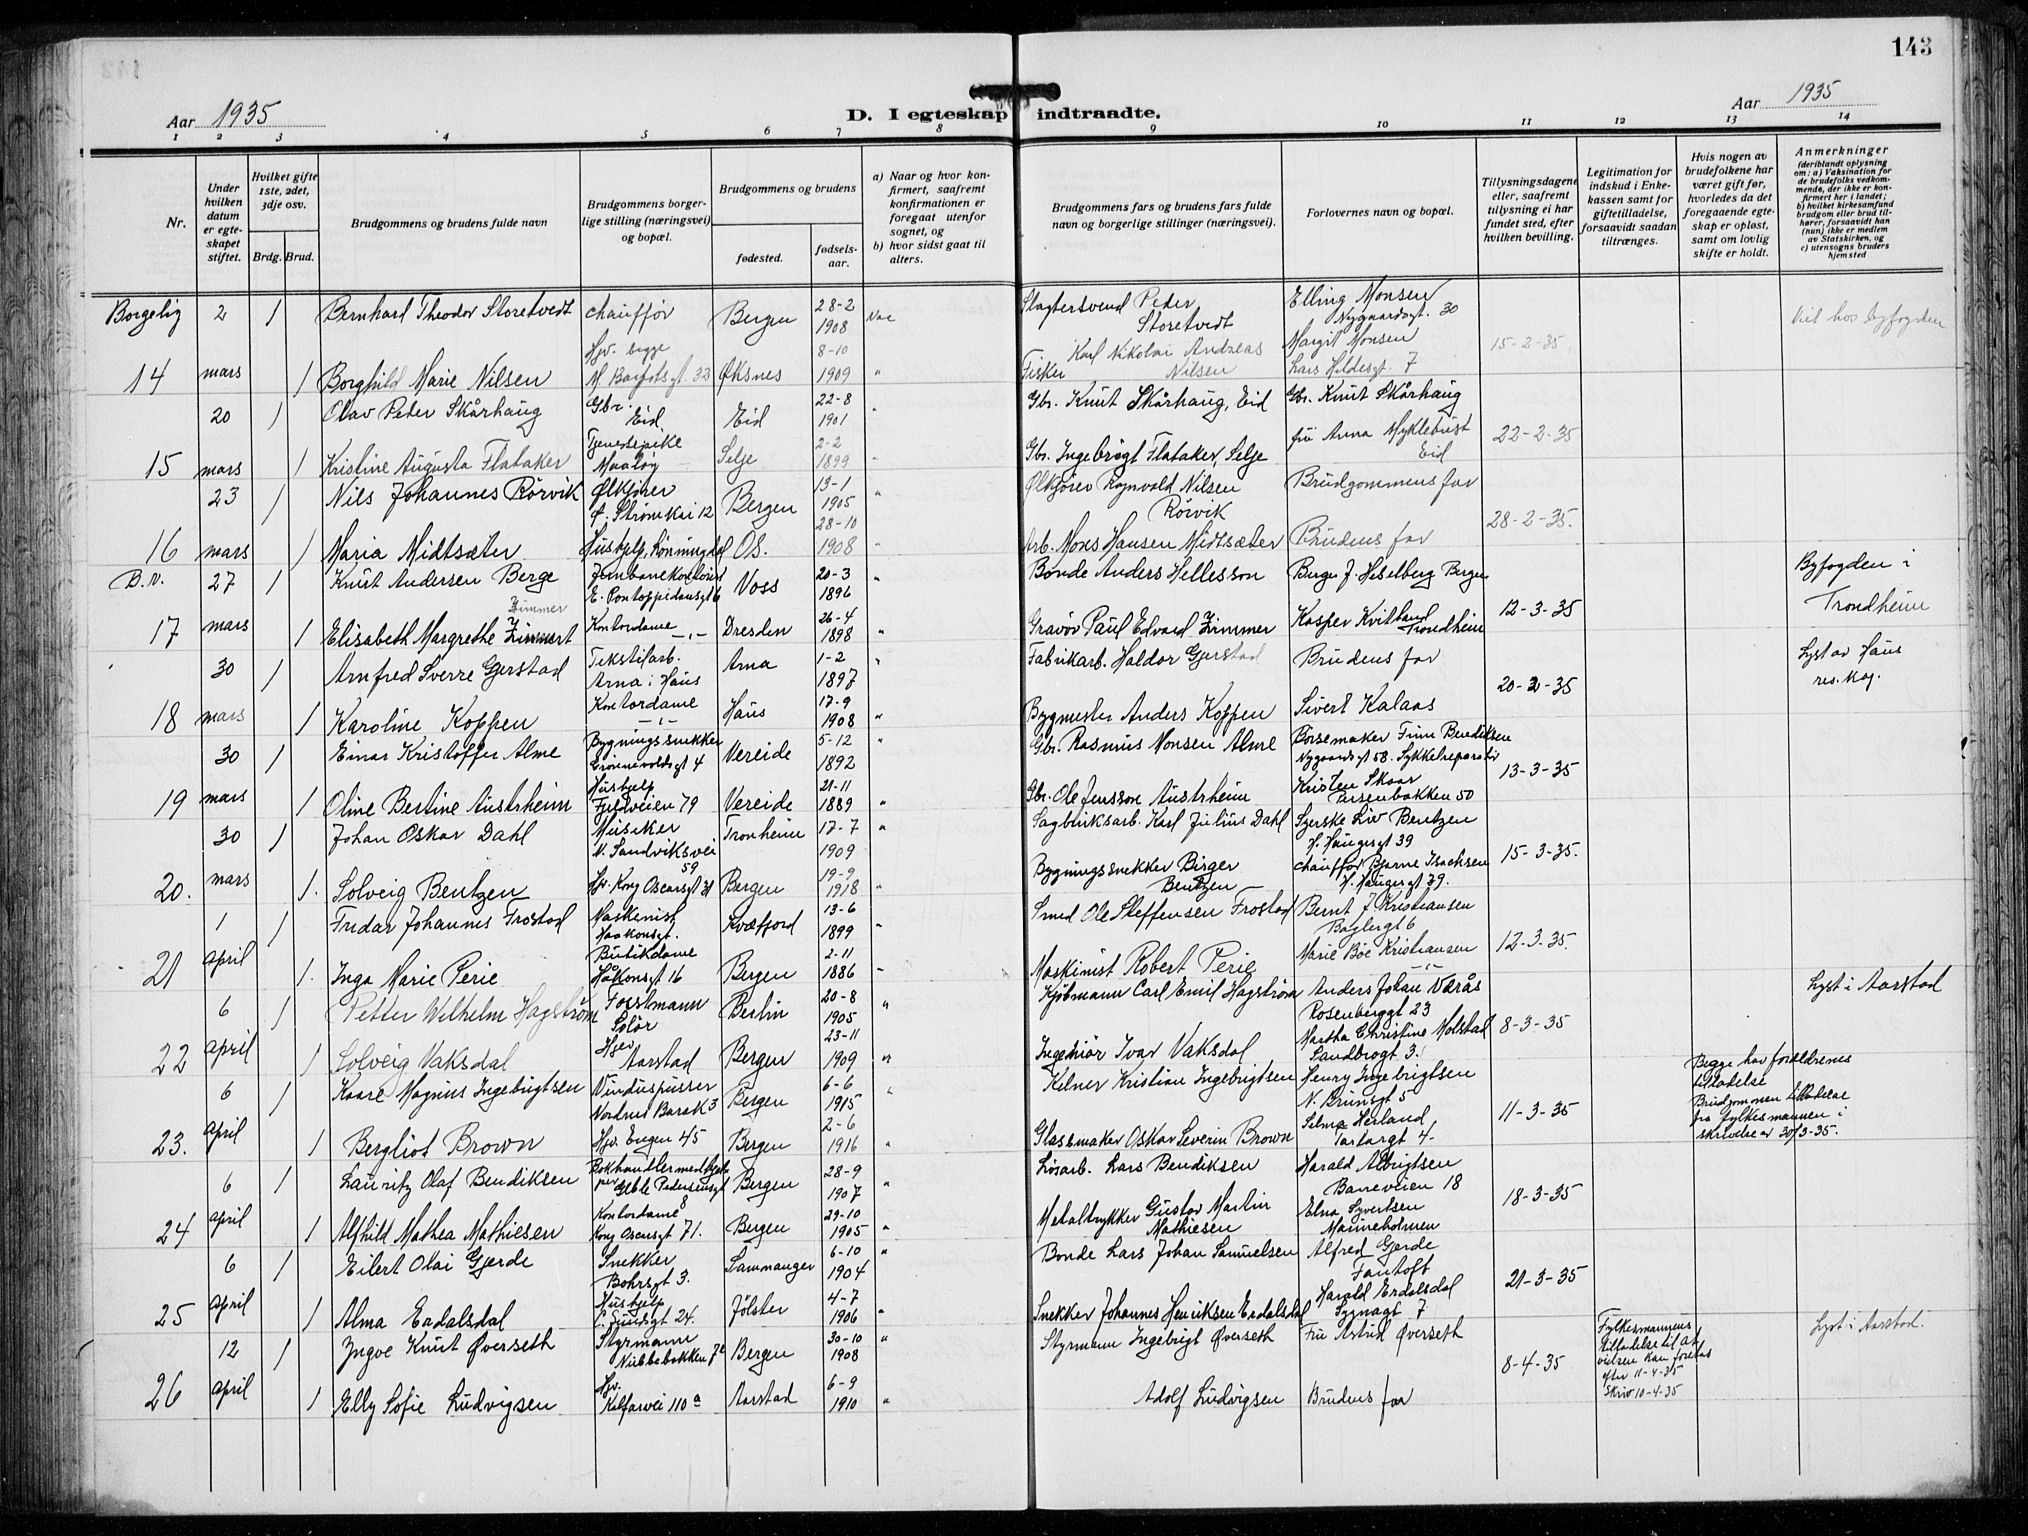 143
Aar 1935
D. I egteskap indtraadte.
Aar 1935
1 2 3 4 5 6 7 8 9 10 11 12 13 14
Nr.
Under hvilken datum er egteskapet stiftet.
Hvilket gifte 1ste, 2det, 3dje osv.
Brdg. Brud.
Brudgommens og brudens fulde navn
Brudgommens borgerlige stilling (næringsvei) og bopæl.
Brudgommens og brudens
fødested.
fødselsaar.
a) Naar og hvor konfirmert, saafremt konfirmationen er foregaat utenfor sognet, og
b) hvor sidst gaat til alters.
Brudgommens fars og brudens fars fulde navn og borgerlige stillinger (næringsvei).
Forlovernes navn og bopæl.
Tillysningsdagene eller, saafremt tillysning ei har fundet sted, efter hvilken bevilling.
Legitimation for indskud i Enkekassen samt for giftetilladelse, forsaavidt saadan tiltrænges.
Hvis nogen av brudefolkene har været gift før, hvorledes da det foregaaende egteskap er opløst, samt om lovlig skifte er holdt.
Anmerkninger
(deriblandt oplysning om: a) Vaksination for de brudefolks vedkommende, der ikke er konfirmert her i landet; b) hvilket kirkesamfund brudgom eller brud tilhører, forsaavidt han (hun) ikke er medlem av Statskirken, og c) utensogns bruders hjemsted
Borgelig 2 1 Bernhard Theodor Storetvedt chauffør Bergen 28-2 1908 Slagtersvend Peter Storetvedt Elling Monsen Nygaardsgt. 30 Viet hos byfogden
14 mars 1 Borghild Marie Nilsen Hjv. begge Øksnes 8-10 1909 " Fisker Karl Nikolai Andreas Nilsen Margit Monsen Lars Hildesgt. 7 15-2-35
20 1 Olav Peter Skårhaug Gbr. Eid Eid 22-8 1901 " Gbr. Knut Skårhaug, Eid Gbr. Knut Skårhaug
15 mars 1 Kristine Augusta Flataker Tjenestepike Maaløy Selje 2-2 1899 " Gbr. Ingebrigt Flataker, Selje fru Anna Myklebust Eid 22-2-35
23 1 Nils Johannes Rørvik Ølkjører Strømkai 12 Bergen 13-1 1905 " Ølkjører Rognvald Nilsen Rørvik Brudgommens far
16 mars 1 Maria Midtsæter Hushjelp, Rønningdal Os. 28-10 1908 " Arb. Mons Hansen Midtsæter Brudens far 28-2-35.
B.v. 27 1 Knut Andersen Berge Jernbanekontorist E. Pontoppidansgt 6 Voss 20-3 1896 " Bonde Anders Hellesson Berger J. Heselberg Bergen Byfogden i Trondheim
17 mars 1 Elisabeth Margrethe Zimmer Kontordame -"- Dresden 26-4 1898 " Gravør Paul Edvard Zimmer Kasper Kvitland Trondheim 12-3-35
30 1 Arnfred Sverre Gjerstad Tekstilarb. Arna i Haus Arna 1-2 1897 " Fabrikarb. Haldor Gjerstad Brudens far Lyst av Haus res. kap.
18 mars 1 Karoline Koppen Kontordame -"- Haus 17-9 1908 " Bygmester Anders Koppen Sivert Kalaas 20-2-35
30 1 Einar Kristoffer Alme Bygningssnekker Grønnevoldsgt 4 Vereide 5-12 1892 " Gbr. Rasmus Monsen Alme Børsemaker Finn Bendiksen Nygaardsgt 58. Sykkelreparatør
19 mars 1 Oline Bertine Austrheim Hushjelp Fjellveien 79 Vereide 21-11 1889 " Gbr. Ole Jensson Austrheim Kristen Skaar Persenbakken 50 13-3-35
30 1 Johan Oskar Dahl Musiker N. Sandviksvei 59 Tronheim 17-7 1909 " Sagbruksarb. Karl Julius Dahl Syerske Liv Bentzen H. Haugesgt 39
20. mars 1. Solveig Bentzen Hjv. Kong Oscarsgt 31 Bergen 19-9 1918 " Bygningssnekker Birger Bentzen chauffør Bjarne Isachsen H. Haugesgt 39. 15-3-35.
1 1 Fridar Johannes Frostad Maskinist Haakonsgt. Kvæfjord 13-6 1899 " Smed Ole Steffensen Frostad Bernt J Kristiansen Baglergt 6
21 april 1. Inga Marie Perie Butikdame Håkonsgt 16 Bergen 2-11 1886 " Maskinist Robert Perie Marie Bøe Kristiansen -"- 12-3-35.
6 1 Petter Wilhelm Hagstrøm Forstmann Solør Berlin 20-8 1905 " Kjøbmann Carl Emil Hagstrøm Anders Johan Varås Rosenberggt 23 Lyst i Aarstad
22 april 1 Solveig Vaksdal Hjv. Aarstad Bergen 23-11 1909 " Ingeniør Ivar Vaksdal Martha Christine Molstad Sandbrogt 3. 8-3-35
6 1 Kaare Magnus Ingebrigtsen Vinduspusser Nordnes Barak 3 Bergen 6-6 1915 " Kelner Kristian Ingebrigtsen Henry Ingebrigtsen N. Brunsgt 5 Begge har foreldrenes tilladelse Brudgommen tilladelse fra fylkesmannen i skrivelse av 30/3-35.
23. april 1 Bergliot Brown Hjv. Engen 45 Bergen 2-6 1916 " Glassmaker Oskar Severin Brown Selma Herland Tartargt 4. 11-3-35
6 1 Lauritz Olaf Bendiksen Geble Pedersensgt 8 Bergen 28-9 1907 " Løsarb. Lars Bendiksen Harald Albrigtsen Baneveien 18
24 april 1 Alfhild Mathea Mathiesen Kontordame Kong Oscarsgt 71. Bergen 29-10 1905 " Metaltrykker Gustav Martin Mathiesen Elna Syvertsen Marineholmen 18-3-35
6 1 Eilert Olai Gjerde Snekker Bohrsgt 3. Sammanger 6-10 1904 " Bonde Lars Johan Samuelsen Alfred Gjerde Fantoft
25 april 1 Alma Erdalsdal Hushjelp C. Sundsgt 24. Jølster 4-7 1906 " Snekker Johannes Henriksen Erdalsdal Harald Erdalsdal Sygnagt 7 21-3-35
12 1 Yngve Knut Øverseth Styrmann Nubbebakken 7e Bergen 30-10 1908 " Styrmann Ingebrigt Øverseth Fru Astrid Øverseth Fylkesmannens tilladelse til at vielsen kan foretas efter 11-4-35 Skriv 10-4-35 Lyst i Aarstad.
26 april 1 Elly Sofie Ludvigsen Hjv. Kalfarvei 110a Aarstad 6-9 1910 " Adolf Ludvigsen Brudens far 8-4-35